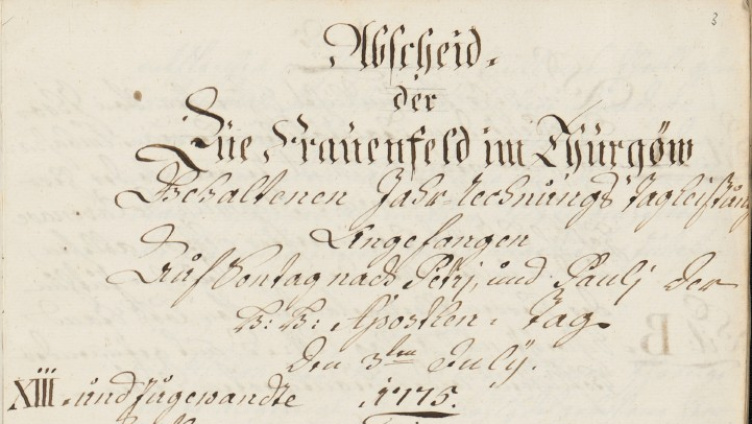 3
Abscheid.
der
Zúe Fraúenfeld im Thúrgøw
Gehaltenen Jahr-rechnúngs tagleistúng
Angefangen
Aúf Sontag nach Petrj, únd Paúlj der
H: H: Apostlen. Tag.
den 3ten Julÿ.
XIII. únd Zúgewandte 1775.